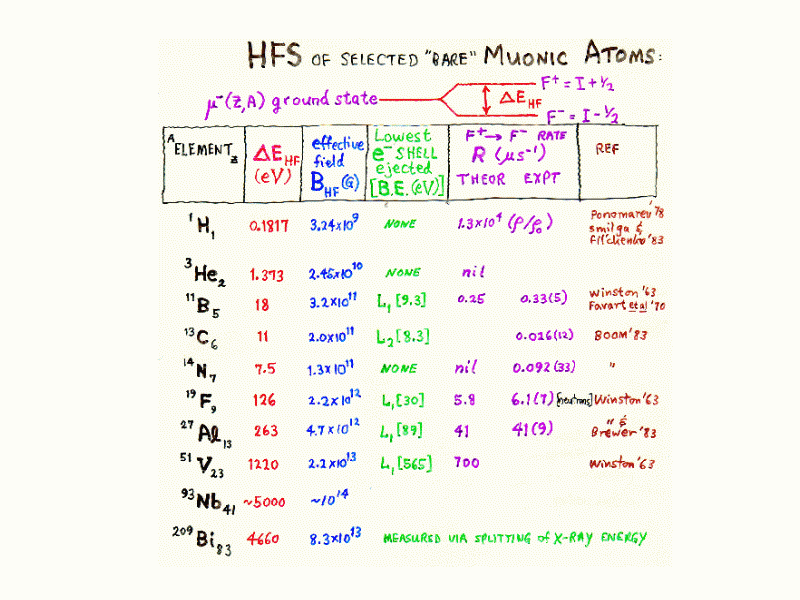 HFS OF SELECTED "BARE" MUONIC ATOMS:
μ⁻(Z,A) ground state
F⁺ = I + ½
ΔE_HF
F⁻ = I - ½
A ELEMENT Z
ΔE_HF (eV)
effective field B_HF (G)
Lowest e⁻ SHELL ejected [B.E. (eV)]
F⁺ → F⁻ RATE R (μs⁻¹) THEOR EXPT
REF
¹H₁ 0.1817 3.24x10⁹ NONE 1.3x10⁴ (ρ/ρ₀) Ponomarev '78
Smilga &
Fil'chenko '83
³He₂ 1.373 2.45x10¹⁰ NONE nil
¹¹B₅ 18 3.2x10¹¹ L₁ [9.3] 0.25 0.33(5) Winston '63
Favart et al '70
¹³C₆ 11 2.0x10¹¹ L₂ [8.3] 0.026(12) BOOM '83
¹⁴N₇ 7.5 1.3x10¹¹ NONE nil 0.092(33) "
¹⁹F₉ 126 2.2x10¹² L₁ [30] 5.8 6.1(7) [neutrons] Winston '63
²⁷Al₁₃ 263 4.7x10¹² L₁ [89] 41 41(9) " &
Brewer '83
⁵¹V₂₃ 1220 2.2x10¹³ L₁ [565] 700 Winston '63
⁹³Nb₄₁ ~5000 ~10¹⁴
²⁰⁹Bi₈₃ 4660 8.3x10¹³ MEASURED VIA SPLITTING of X-RAY ENERGY